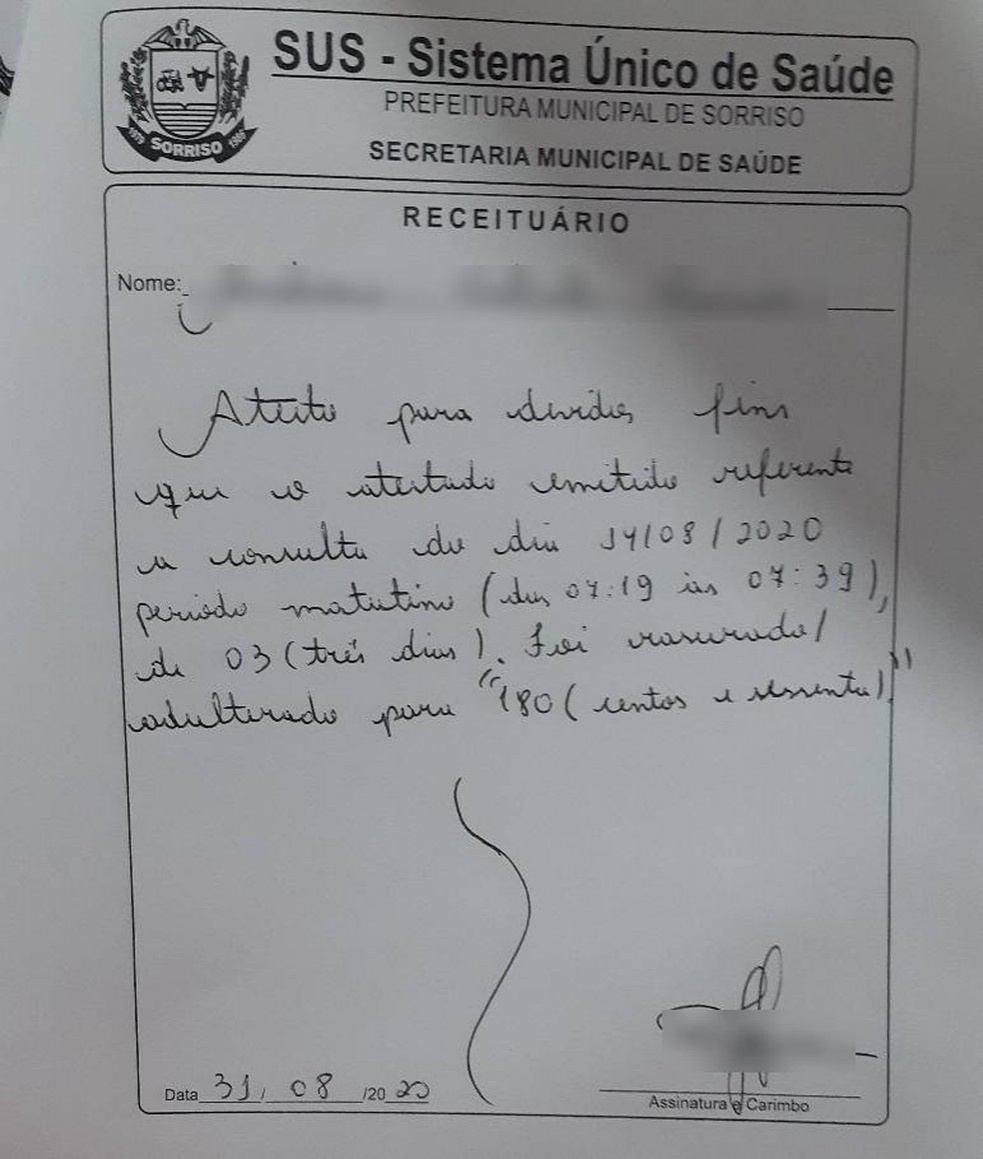 SUS - Sistema Único de Saúde
PREFEITURA MUNICIPAL DE SORRISO
SECRETARIA MUNICIPAL DE SAÚDE
1979 SORRISO 1986
RECEITUÁRIO
Nome:
Atesto para devidos fins
que o atestado emitido referente
a consulta do dia 14/08/2020
periodo matutino (das 07:19 às 07:39),
de 03 (três dias). Foi rasurado/
adulterado para "180 (centos e sessenta)"
Data 31/08/2020
Assinatura e Carimbo